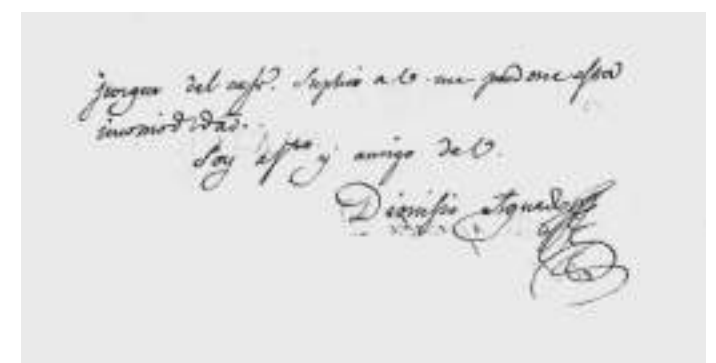 juzgue del caso. Suplico a V. me perdone esta
incomodidad.
Soy afmo y amigo de V.
Dionisio Aguado